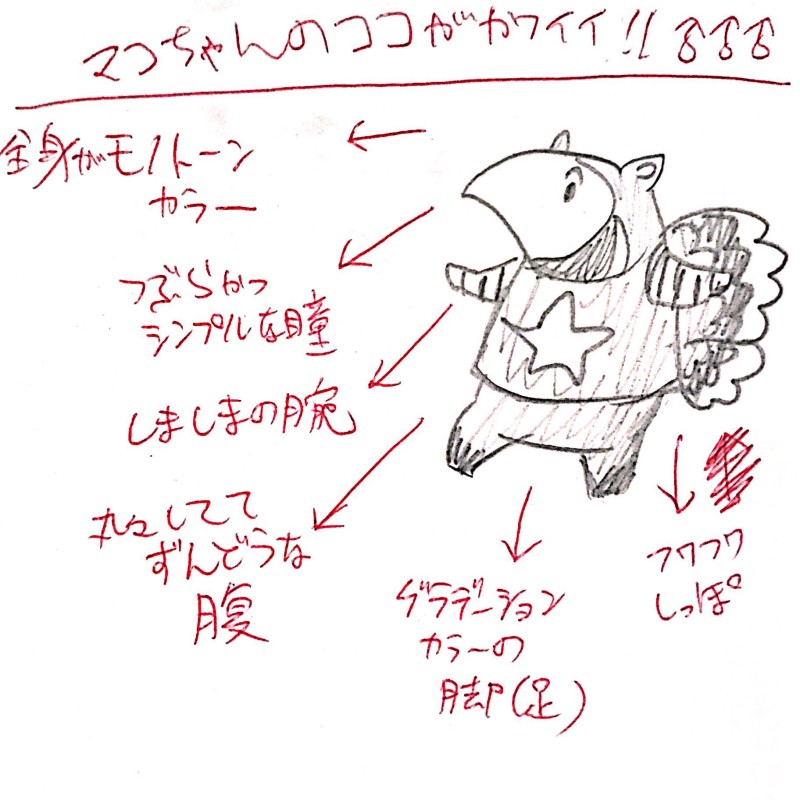 マコちゃんのココがカワイイ!! ♂♂♂
全身がモノトーン
カラー
つぶらかつ
シンプルな瞳
しましまの腕
丸々してて
ずんどうな
腹
グラデーション
カラーの
脚(足)
フワフワ
しっぽ